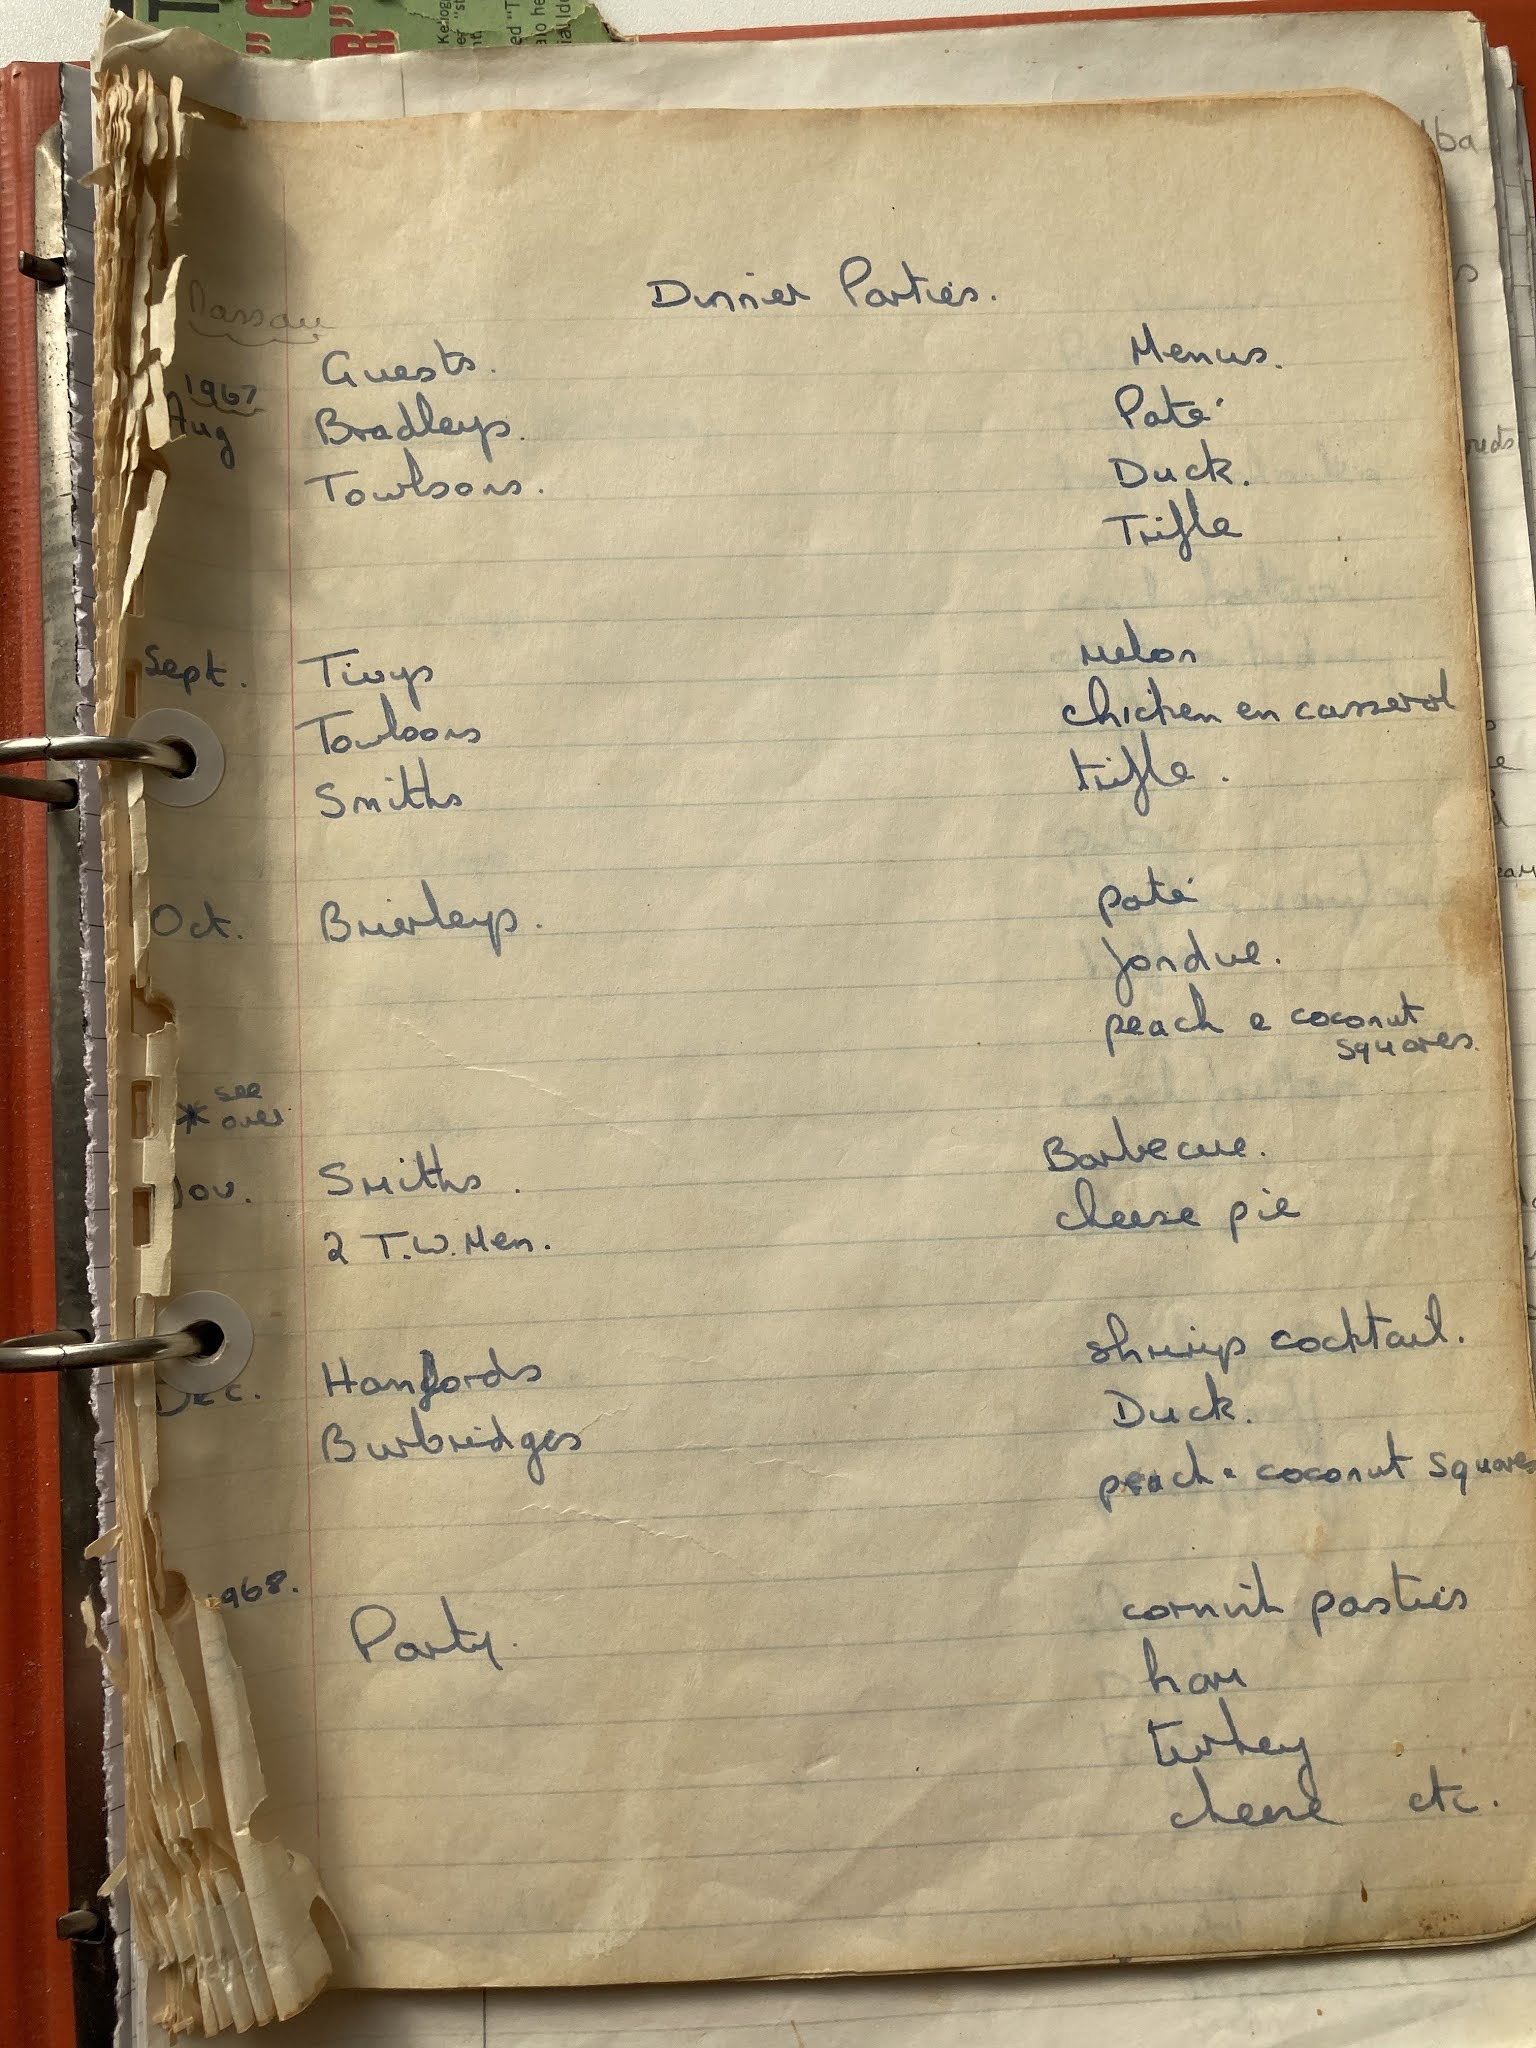 Dinner Parties.
Nassau
Guests. Menus.
1967
Aug Bradleys. Paté
Towlsons. Duck.
Trifle
Sept. Tivys Melon
Towlsons chicken en casserol
Smiths trifle.
Oct. Brierleys. paté
fondue.
peach & coconut
squares.
* see
over
Nov. Smiths. Barbecue.
2 T.W. Men. cheese pie
shrimp cocktail.
Dec. Hanfords Duck.
Burbridges peach & coconut squares
1968. cornish pasties
Party. ham
turkey
cheese etc.